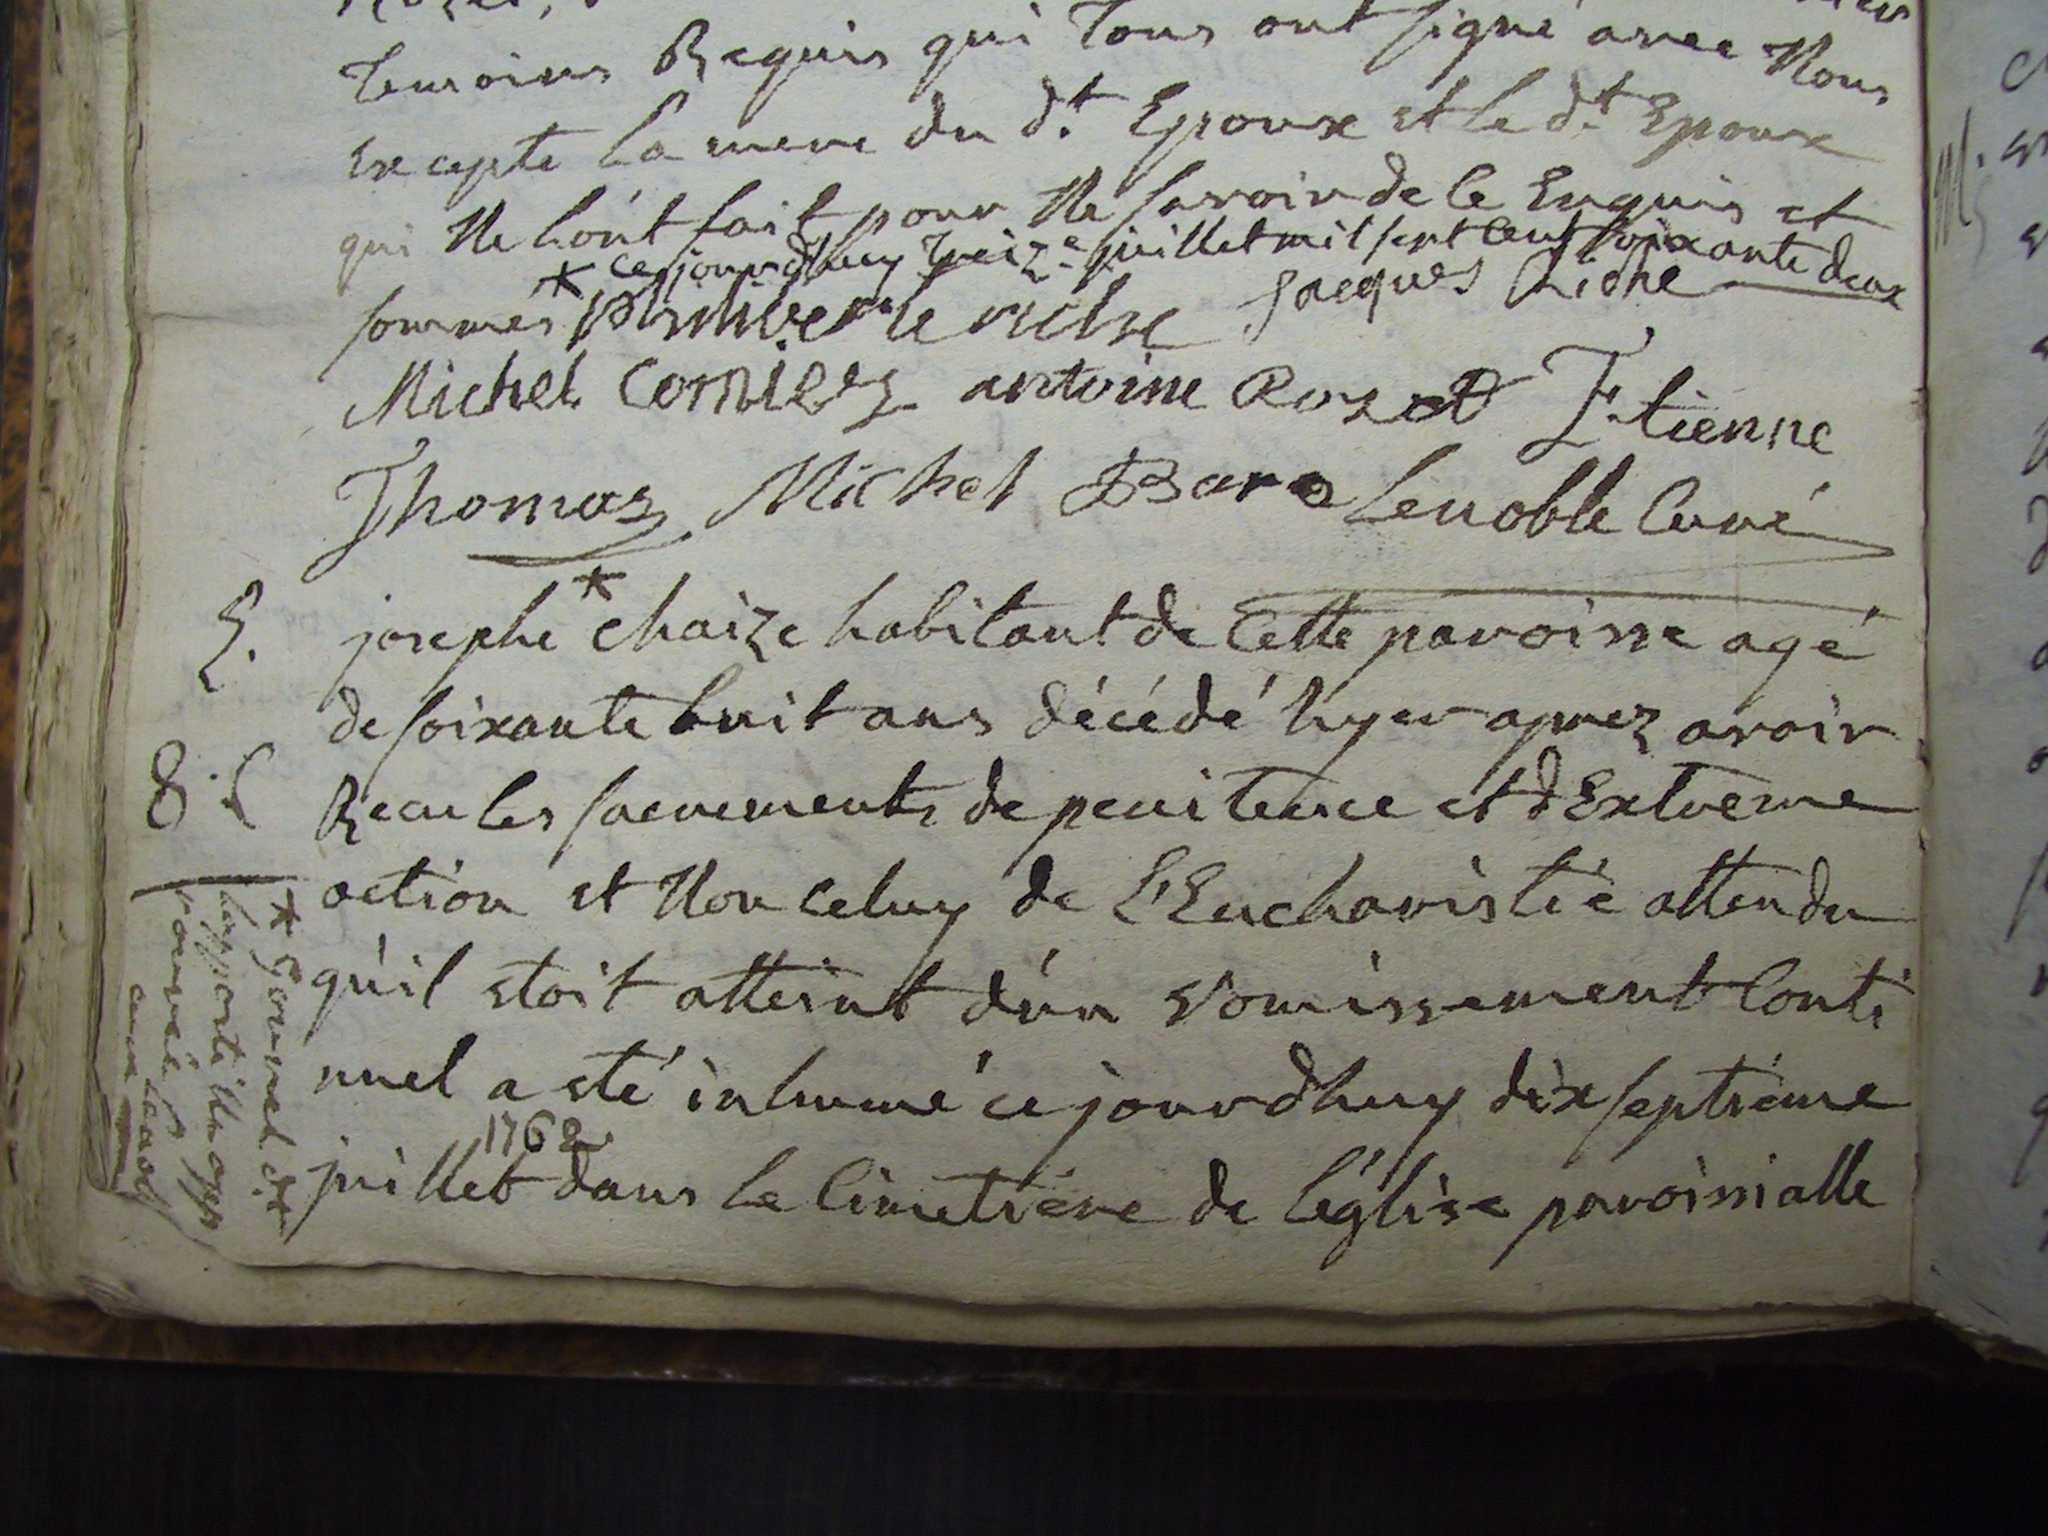 temoins Requis qui tous ont signé avec Nous
Excepte la mere du d.t Epoux et le d.t Epoux
qui Ne l'ont fait pour Ne savoir de ce Enquis et
* ce jourdhuy treize juillet mil sept cent soixante deux
sommés * philiber le riche Jacques Riche
Michel Cornier antoine Rozet Etienne
Thomas Michel Bare Lenoble Curé
josephe * chaize habitant de Cette paroisse agé
de soixante huit ans décédé hyer aprez avoir
Recu les sacrements de penitence et dExtreme
oction et Non Celuy de L'Eucharistie attendu
qu'il etoit atteint d'un vomissement Conti
nuel a eté inhumé ce jourdhuy dix septiéme
juillet 1762 dans le Cimetiére de l'église paroissialle
S.
8.
* Gounet d.t